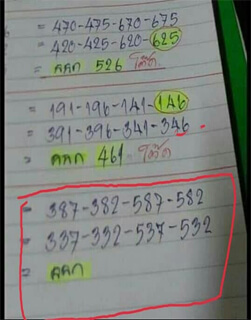 = 470-475-670-675
= 420-425-620-625
= ออก 526 โต๊ด
= 191-196-141-146
= 391-396-341-346
= ออก 461 โต๊ด
= 387-382-587-582
= 337-332-537-532
= ออก